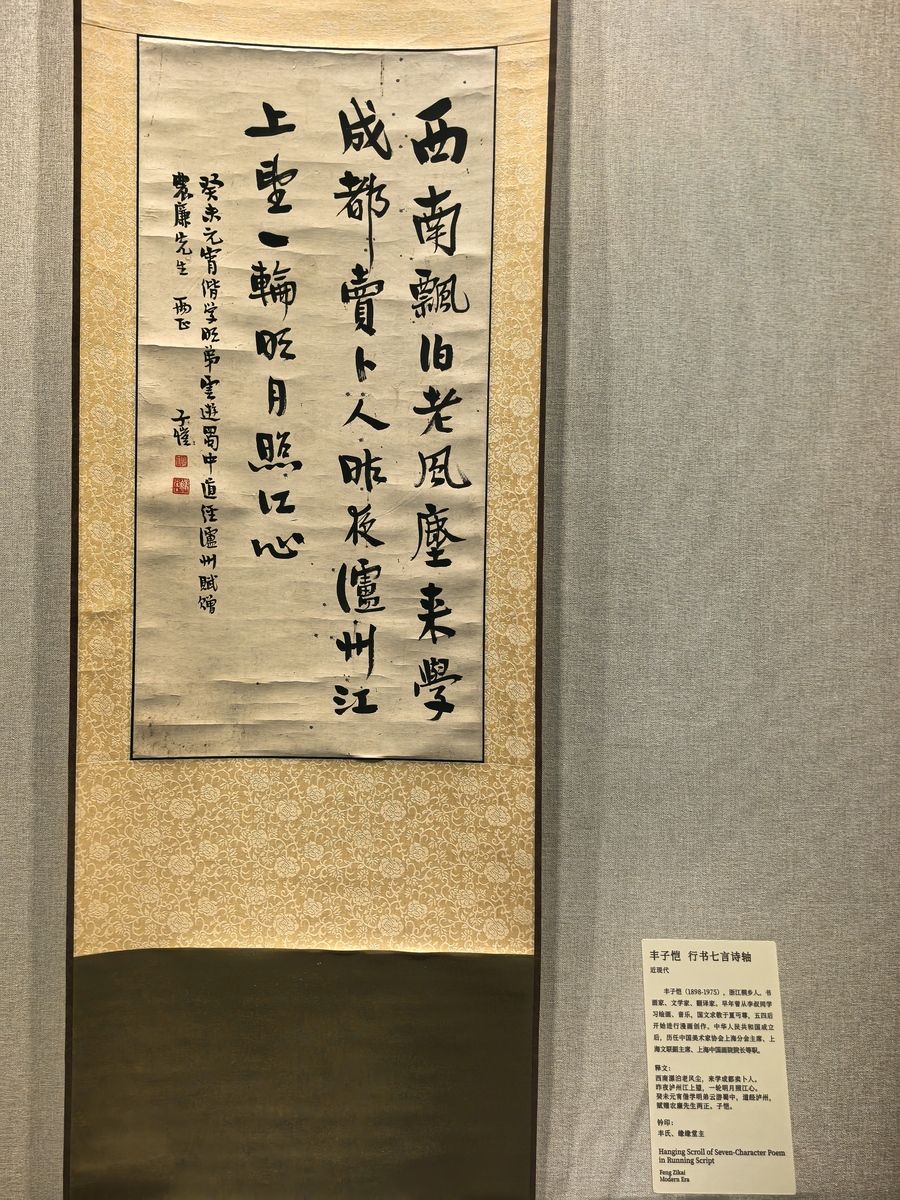 西南飄泊老風塵来學
成都賣卜人昨夜瀘州江
上望一輪明月照江心
癸未元宵偕学明弟雲遊蜀中道經瀘州賦贈
農廉先生 両正
子愷
丰子恺 行书七言诗轴
近现代
丰子恺(1898-1975),浙江桐乡人。书
画家、文学家、翻译家。早年曾从李叔同学
习绘画、音乐,国文求教于夏丏尊,五四后
开始进行漫画创作。中华人民共和国成立
后,历任中国美术家协会上海分会主席、上
海文联副主席、上海中国画院院长等职。
释文:
西南漂泊老风尘,来学成都卖卜人。
昨夜泸州江上望,一轮明月照江心。
癸未元宵偕学明弟云游蜀中,道经泸州,
赋赠农廉先生两正。子恺。
钤印:
丰氏、缘缘堂主
Hanging Scroll of Seven-Character Poem
in Running Script
Feng Zikai
Modern Era